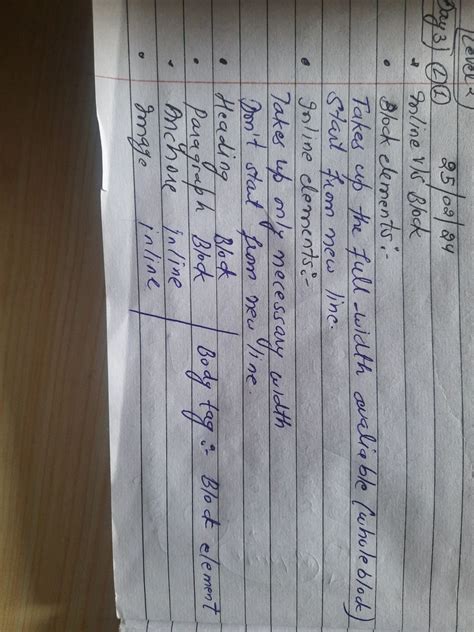 Level-2
Day 3)
25/02/24
Inline V/s Block
Block elements:-
Takes up the full-width avaliable (whole block)
Start from new line.
Inline elements:-
Takes up only necessary width
Don't start from new line.
Heading Block
Paragraph Block
Anchore inline
Image inline
Body tag :- Block element